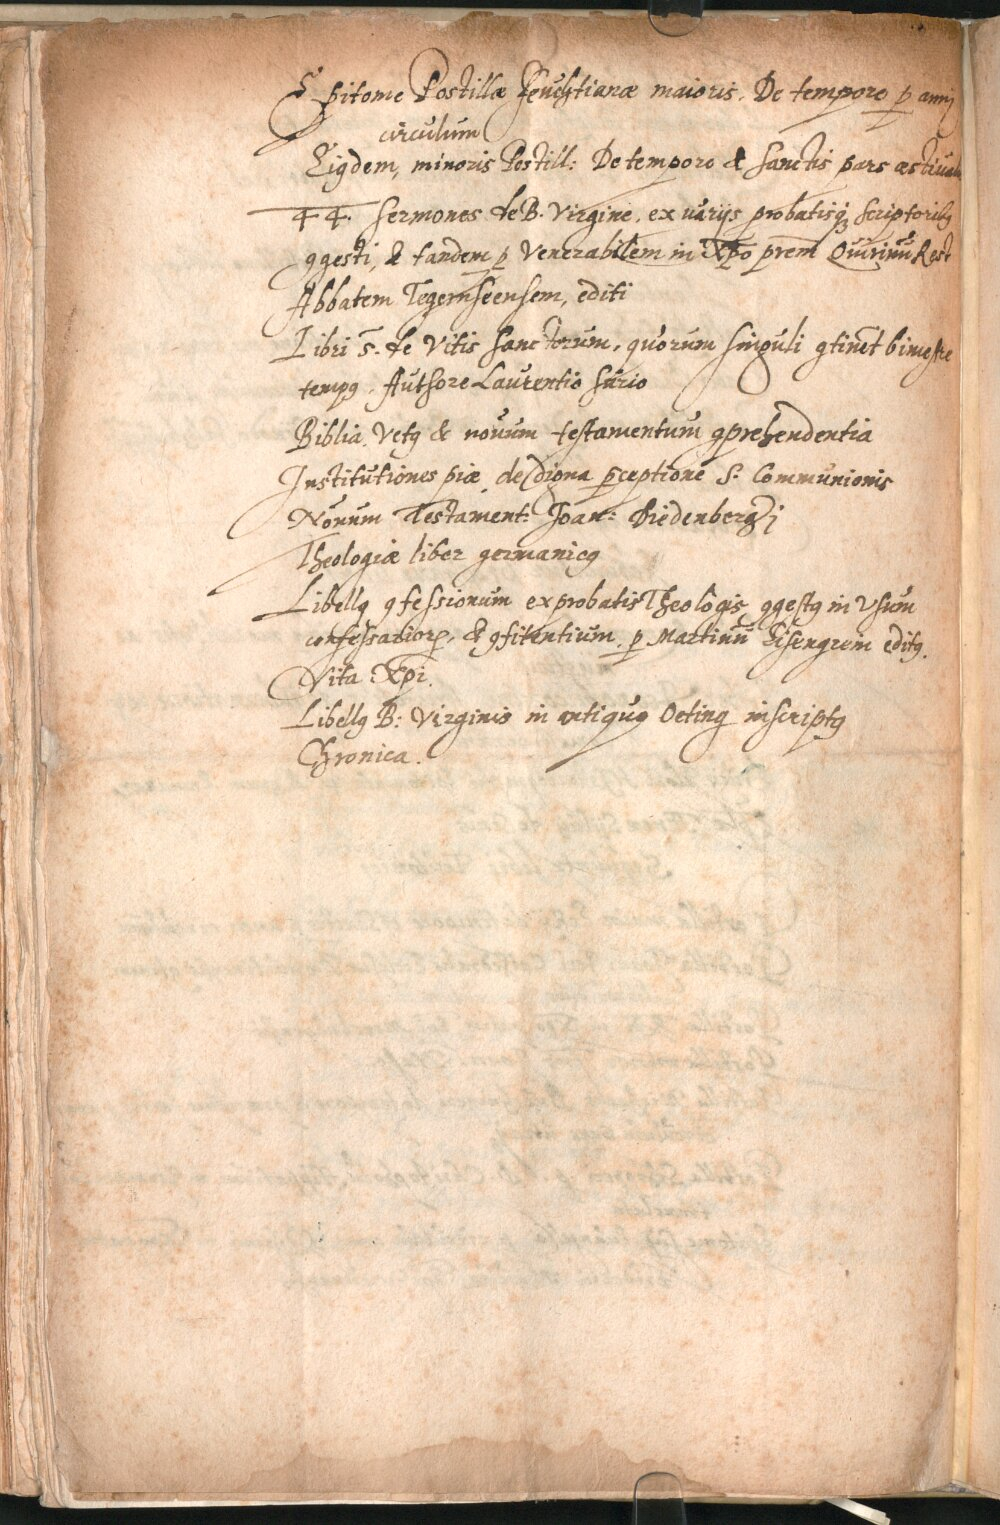 Epitome Postillæ Feuchtianæ maioris. De tempore ꝑ anni
circulum
Eiꝰdem, minoris Postill: De tempore & Sanctis pars æstiualis
44. Sermones de B. Virgine, ex varijs probatisqꝫ scriptoribꝰ
ꝯgesti, & tandem ꝑ Venerabilem in Xp̄o p̄rem Quirinū Rest
Abbatem Tegernseensem, editi
Libri 5. de Vitis Sanctorum, quorum singuli ꝯtinēt bimestre
tempꝰ. Authore Laurentio Surio
Biblia Vetꝰ & nouum testamentum ꝯprehendentia
Institutiones piæ, de diḡna ꝑceptione S. Communionis
Nouum Testament: Joan: Diedenbergij
Theologiæ liber germanicꝰ
Libellꝰ ꝯfessionum ex probatis Theologis ꝯgestꝰ in Vsum
confessarioꝝ, & ꝯfitentium ꝑ Martinū Eisengrein editꝰ.
Vita Xp̄i.
Libellꝰ B: Virginis in antiquo Oeting inscriptꝰ
Chronica.